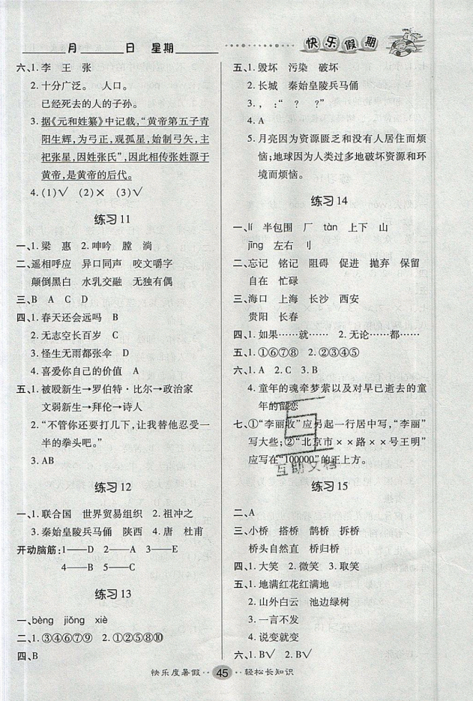 月 日 星期
快乐假期
六、1. 李 王 张
2. 十分广泛。 人口。
已经死去的人的子孙。
3. 据《元和姓纂》中记载,“黄帝第五子青
阳生辉,为弓正,观孤星,始制弓矢,主
祀张星,因姓张氏”,因此相传张姓源于
黄帝,是黄帝的后代。
4. (1)√ (2)× (3)√
练习11
一、1. 梁 惠 2. 呻吟 膛 淌
二、遥相呼应 异口同声 咬文嚼字
颠倒黑白 水乳交融 无独有偶
三、B A C D
四、1. 春天还会远吗
2. 无志空长百岁 C
3. 怪生无雨都张伞 D
4. 喜爱你自己的时候 A
五、1. 被殴新生→罗伯特·比尔→政治家
文弱新生→拜伦→诗人
2. “不管你还要打几下,让我替他忍受一
半的拳头吧。”
3. AB
练习12
一、1. 联合国 世界贸易组织 2. 祖冲之
3. 秦始皇陵兵马俑 陕西 4. 唐 杜甫
开动脑筋:1——D 2——A 3——E
4——B 5——C
练习13
一、bèng jiǒng xiè
二、1. ③④⑥⑦⑨ 2. ①②⑤⑧⑩
四、B
五、1. 毁坏 污染 破坏
2. 长城 秦始皇陵兵马俑
3. , :“ ? ”?
4. A
5. 月亮因为资源匮乏和没有人居住而烦
恼;地球因为人类过多地破坏资源和环
境而烦恼。
练习14
一、lí 半包围 厂 tàn 上下 山
jīng 左右 刂
二、忘记 铭记 阻碍 促进 抛弃 保留
自在 忙碌
三、海口 上海 长沙 西安
贵阳 长春
四、1. 如果……就…… 2. 无论……都……
五、1. ①⑥⑦⑧ 2. ②③④⑤
六、1. A 2. C 3. B
4. 童年的魂牵梦萦以及对早已逝去的童
年的留恋
七、①“李丽收”应另起一行居中写,“李丽”
写大些;②“北京市××路××号王明”
应写在“100000”的正上方。
练习15
二、A
三、小桥 搭桥 鹊桥 拆桥
桥头自然直 桥归桥
四、1. 大笑 2. 微笑 3. 取笑
五、1. 地满红花红满地
2. 山外白云 池边绿树
3. 一言不发
4. 说变就变
六、1. B√ 2. B√
互助文档
快乐度暑假··45··轻松长知识